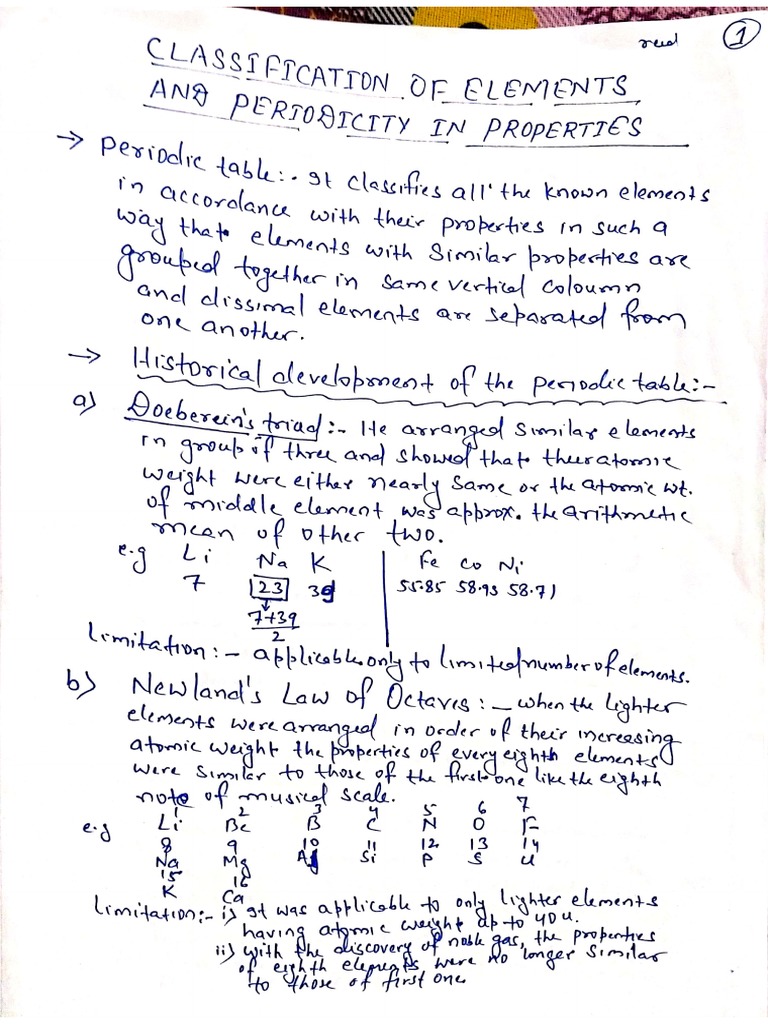 read 1
CLASSIFICATION OF ELEMENTS
AND PERIODICITY IN PROPERTIES
→ Periodic table:- It classifies all the known elements
in accordance with their properties in such a
way that elements with Similar properties are
grouped together in same vertical coloumn
and dissimal elements are separated from
one another.
→ Historical development of the periodic table:-
a) Doeberein's triad:- He arranged similar elements
in group of three and showed that their atomic
weight were either nearly same or the atomic wt.
of middle element was approx. the arithmetic
mean of other two.
e.g Li Na K Fe Co Ni
7 23 39 55.85 58.93 58.71
7+39
2
Limitation:- applicable only to limited number of elements.
b) Newland's Law of Octaves:- when the lighter
elements were arranged in order of their increasing
atomic weight the properties of every eighth elements
were similar to those of the first one like the eighth
note of musical scale.
1 2 3 4 5 6 7
e.g Li Be B C N O F
8 9 10 11 12 13 14
Na Mg Al Si P S Cl
15 16
K Ca
Limitation:- i) It was applicable to only lighter elements
having atomic weight up to 40u.
ii) with the discovery of noble gas, the properties
of eighth elements were no longer similar
to those of first one